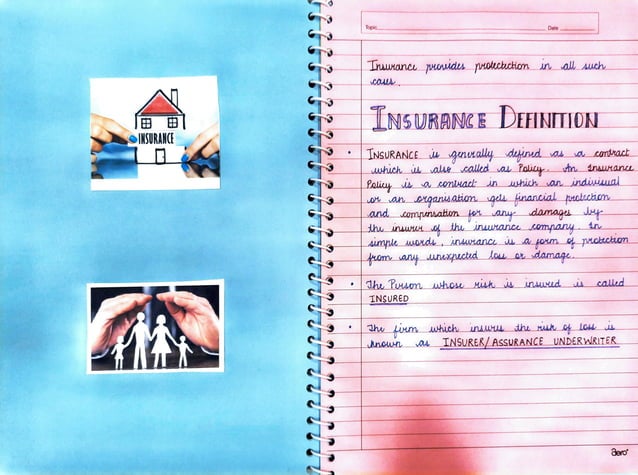 INSURANCE
Topic
Date
Insurance provides protectection in all such
cases.
INSURANCE DEFINITION
• INSURANCE is generally defined as a contract
which is also called as Policy. An Insurance
Policy is a contract in which an individual
or an organisation gets financial protection
and compensation for any damages by
the insurer of the insurance company. In
simple words, insurance is a form of protection
from any unexpected loss or damage.
• The Person whose risk is insured is called
INSURED
• The firm which insures the risk of loss is
known as INSURER/ASSURANCE UNDERWRITER
aero